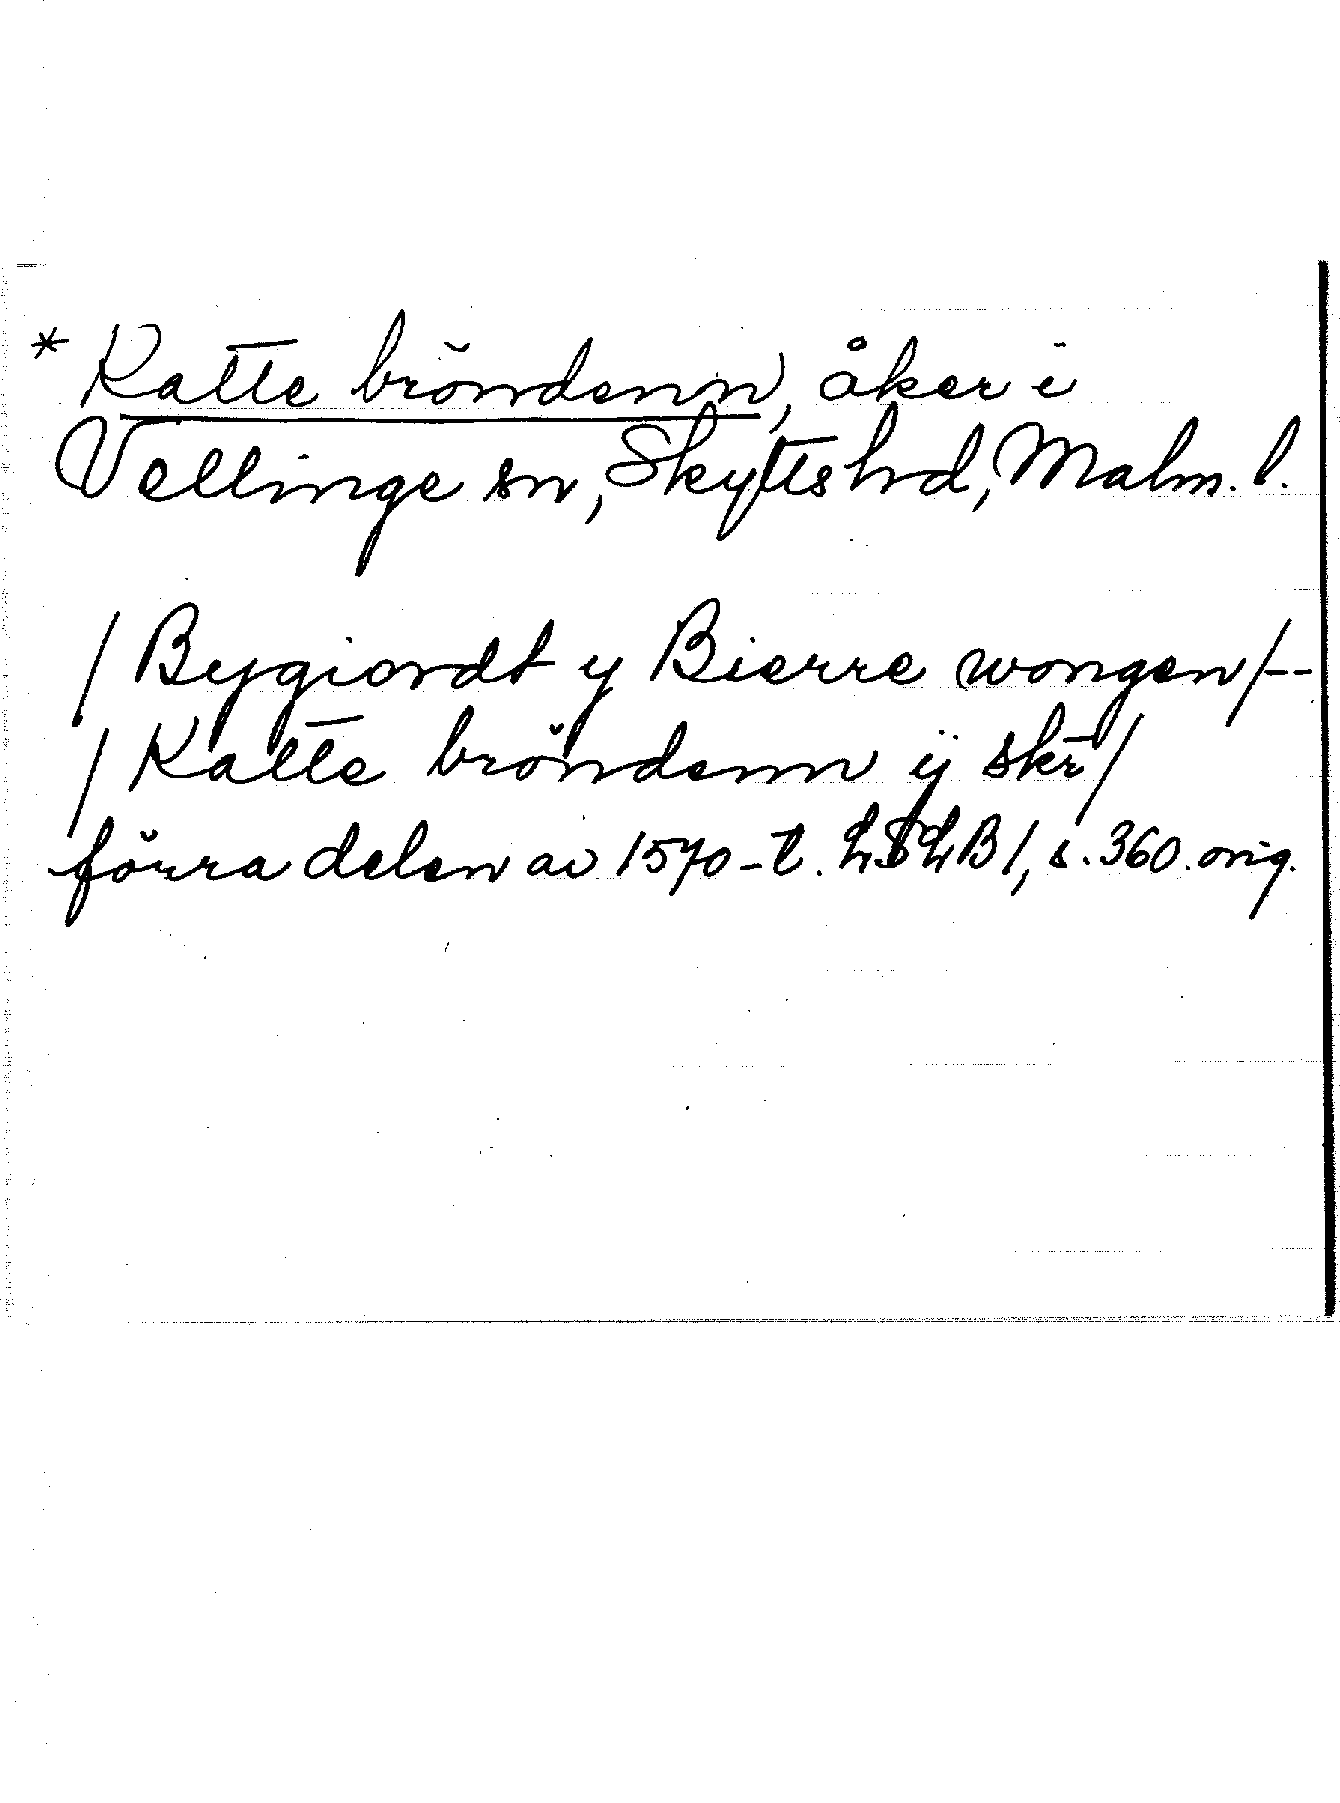 * Katte bröndenn, åker i
Vellinge sn, Skytts hd, Malm. l.
/Bygiordt y Bierre wongen/--
/Katte bröndenn ÿ skr/
förra delen av 1570-t. LSLB 1, s. 360. orig.